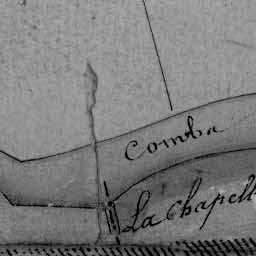 Comba
La Chapell